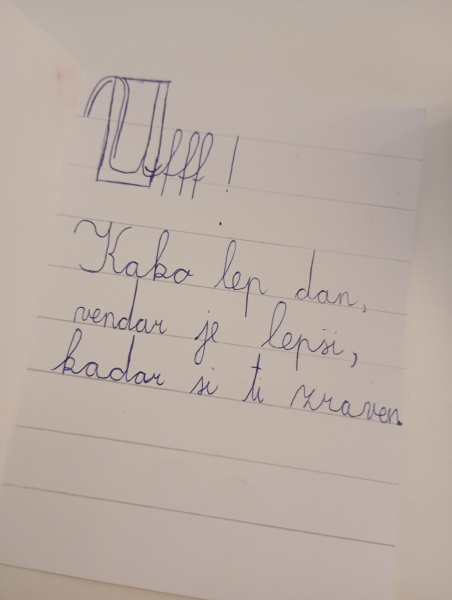 Uffff!
Kako lep dan,
vendar je lepši,
kadar si ti zraven.